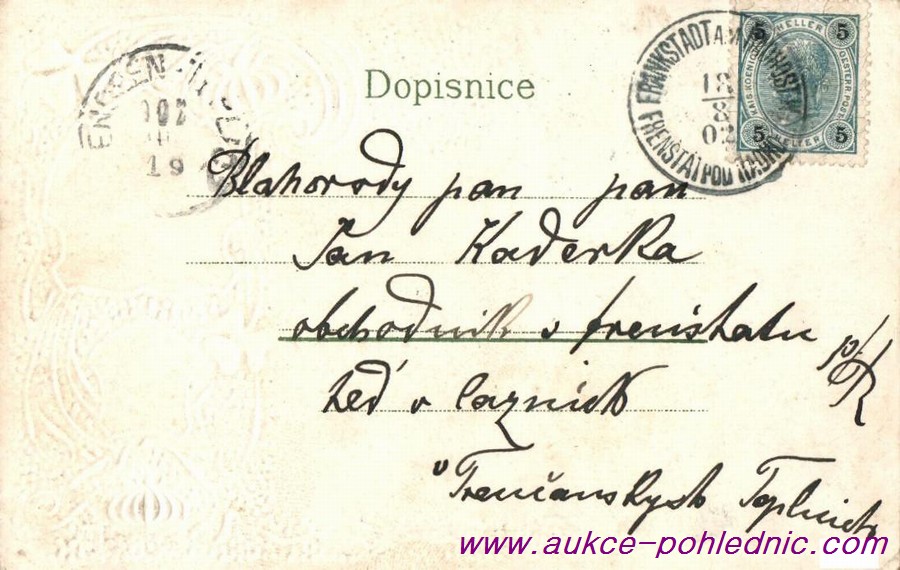 Dopisnice
FRANKSTADT A.
18
8
02
FRENSTÁT POD RADH
5 HELLER 5
KAIS. KOENIGL. OESTERR. POST
5 HELLER 5
902
19
Blahorody pan pan
Jan Kaderka
obchodnik v frenštatu
p/R
teď v laznich
v Trenčanskych Teplicich
www.aukce-pohlednic.com